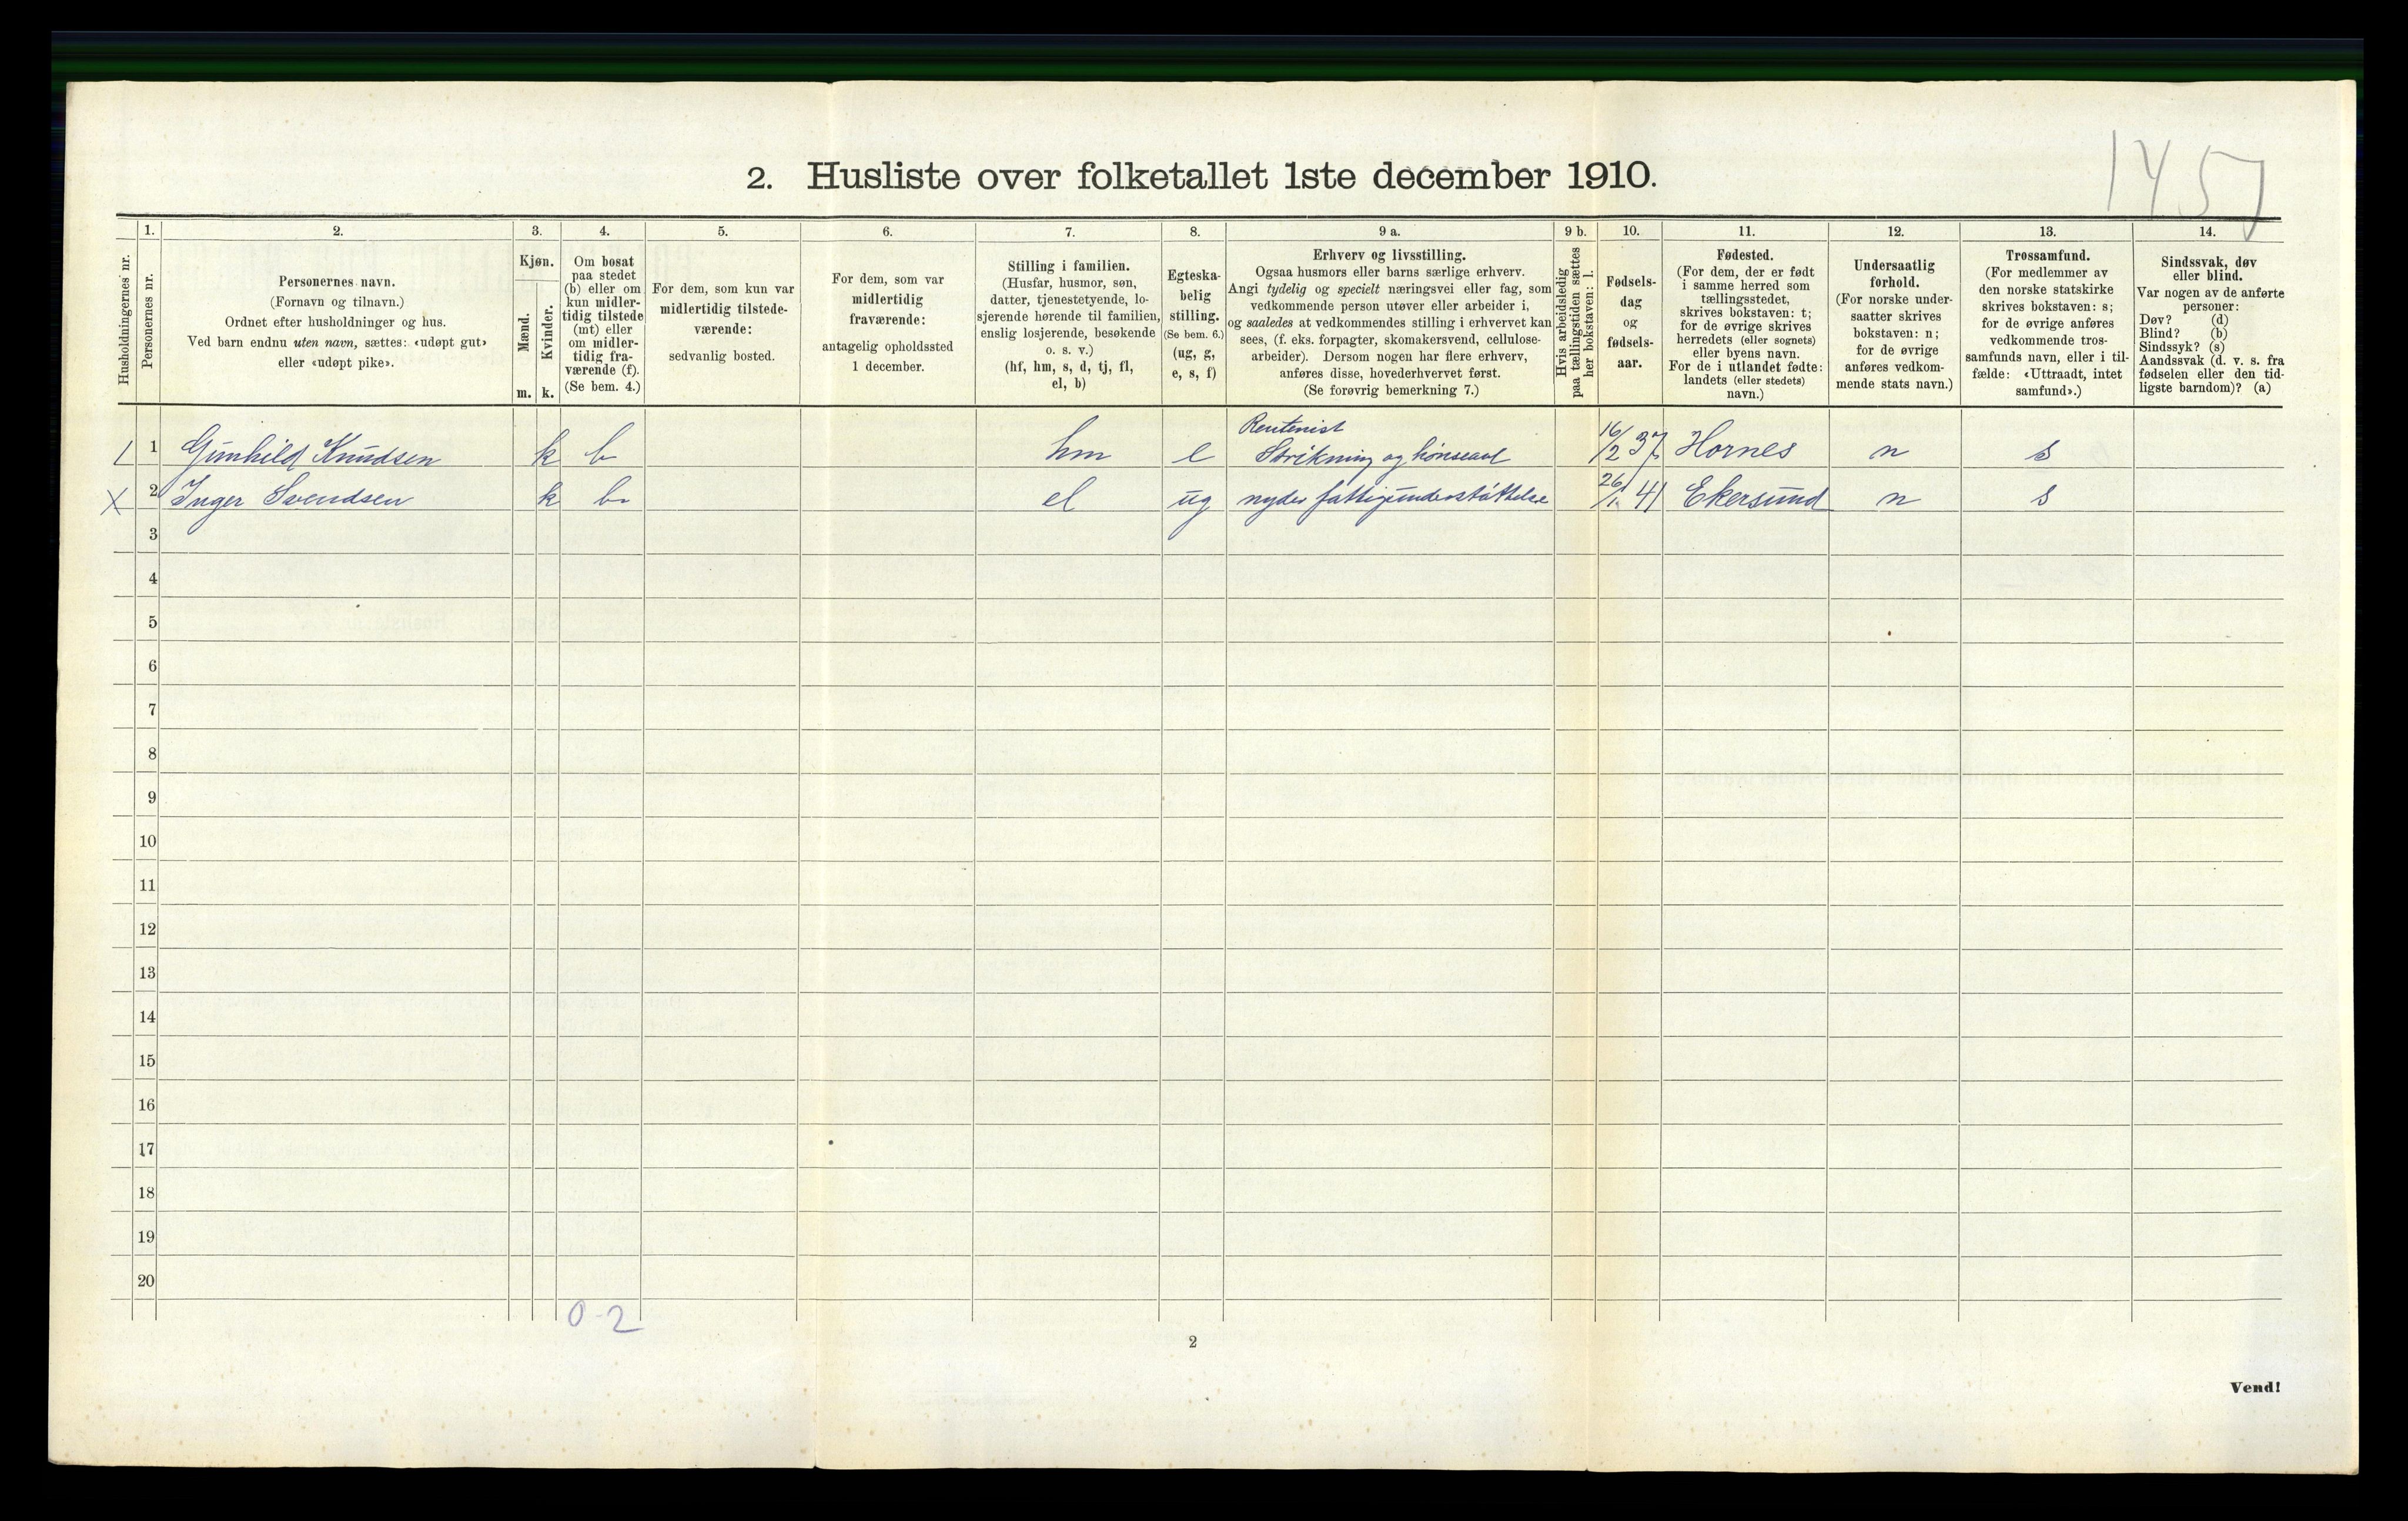 1457
2. Husliste over folketallet 1ste december 1910.
Husholdningernes nr.
1.
Personernes nr.
2.
Personernes navn.
(Fornavn og tilnavn.)
Ordnet efter husholdninger og hus.
Ved barn endnu uten navn, sættes: «udøpt gut»
eller «udøpt pike».
3.
Kjøn.
Mænd.
Kvinder.
m. k.
4.
Om bosat
paa stedet
(b) eller om
kun midler-
tidig tilstede
(mt) eller
om midler-
tidig fra-
værende (f).
(Se bem. 4.)
5.
For dem, som kun var
midlertidig tilstede-
værende:
sedvanlig bosted.
6.
For dem, som var
midlertidig
fraværende:
antagelig opholdssted
1 december.
7.
Stilling i familien.
(Husfar, husmor, søn,
datter, tjenestetyende, lo-
sjerende hørende til familien,
enslig losjerende, besøkende
o. s. v.)
(hf, hm, s, d, tj, fl,
el, b)
8.
Egteska-
belig
stilling.
(Se bem. 6.)
(ug, g,
e, s, f)
9 a.
Erhverv og livsstilling.
Ogsaa husmors eller barns særlige erhverv.
Angi tydelig og specielt næringsvei eller fag, som
vedkommende person utøver eller arbeider i,
og saaledes at vedkommendes stilling i erhvervet kan
sees, (f. eks. forpagter, skomakersvend, cellulose-
arbeider). Dersom nogen har flere erhverv,
anføres disse, hovederhvervet først.
(Se forøvrig bemerkning 7.)
9 b.
Hvis arbeidsledig
paa tællingstiden sættes
her bokstaven: l.
10.
Fødsels-
dag
og
fødsels-
aar.
11.
Fødested.
(For dem, der er født
i samme herred som
tællingsstedet,
skrives bokstaven: t;
for de øvrige skrives
herredets (eller sognets)
eller byens navn.
For de i utlandet fødte:
landets (eller stedets)
navn.)
12.
Undersaatlig
forhold.
(For norske under-
saatter skrives
bokstaven: n;
for de øvrige
anføres vedkom-
mende stats navn.)
13.
Trossamfund.
(For medlemmer av
den norske statskirke
skrives bokstaven: s;
for de øvrige anføres
vedkommende tros-
samfunds navn, eller i til-
fælde: «Uttraadt, intet
samfund».)
14.
Sindssvak, døv
eller blind.
Var nogen av de anførte
personer:
Døv? (d)
Blind? (b)
Sindssyk? (s)
Aandssvak (d. v. s. fra
fødselen eller den tid-
ligste barndom)? (a)
Rentenist
1 Gunhild Knudsen k b hm e Strikning og hønseavl 16/2 37 Hornes n s
X 2 Inger Svendsen k b el ug nyder fattigunderstøttelse 26/1 41 Ekersund n s
3
4
5
6
7
8
9
10
11
12
13
14
15
16
17
18
19
20
0-2
2
Vend!